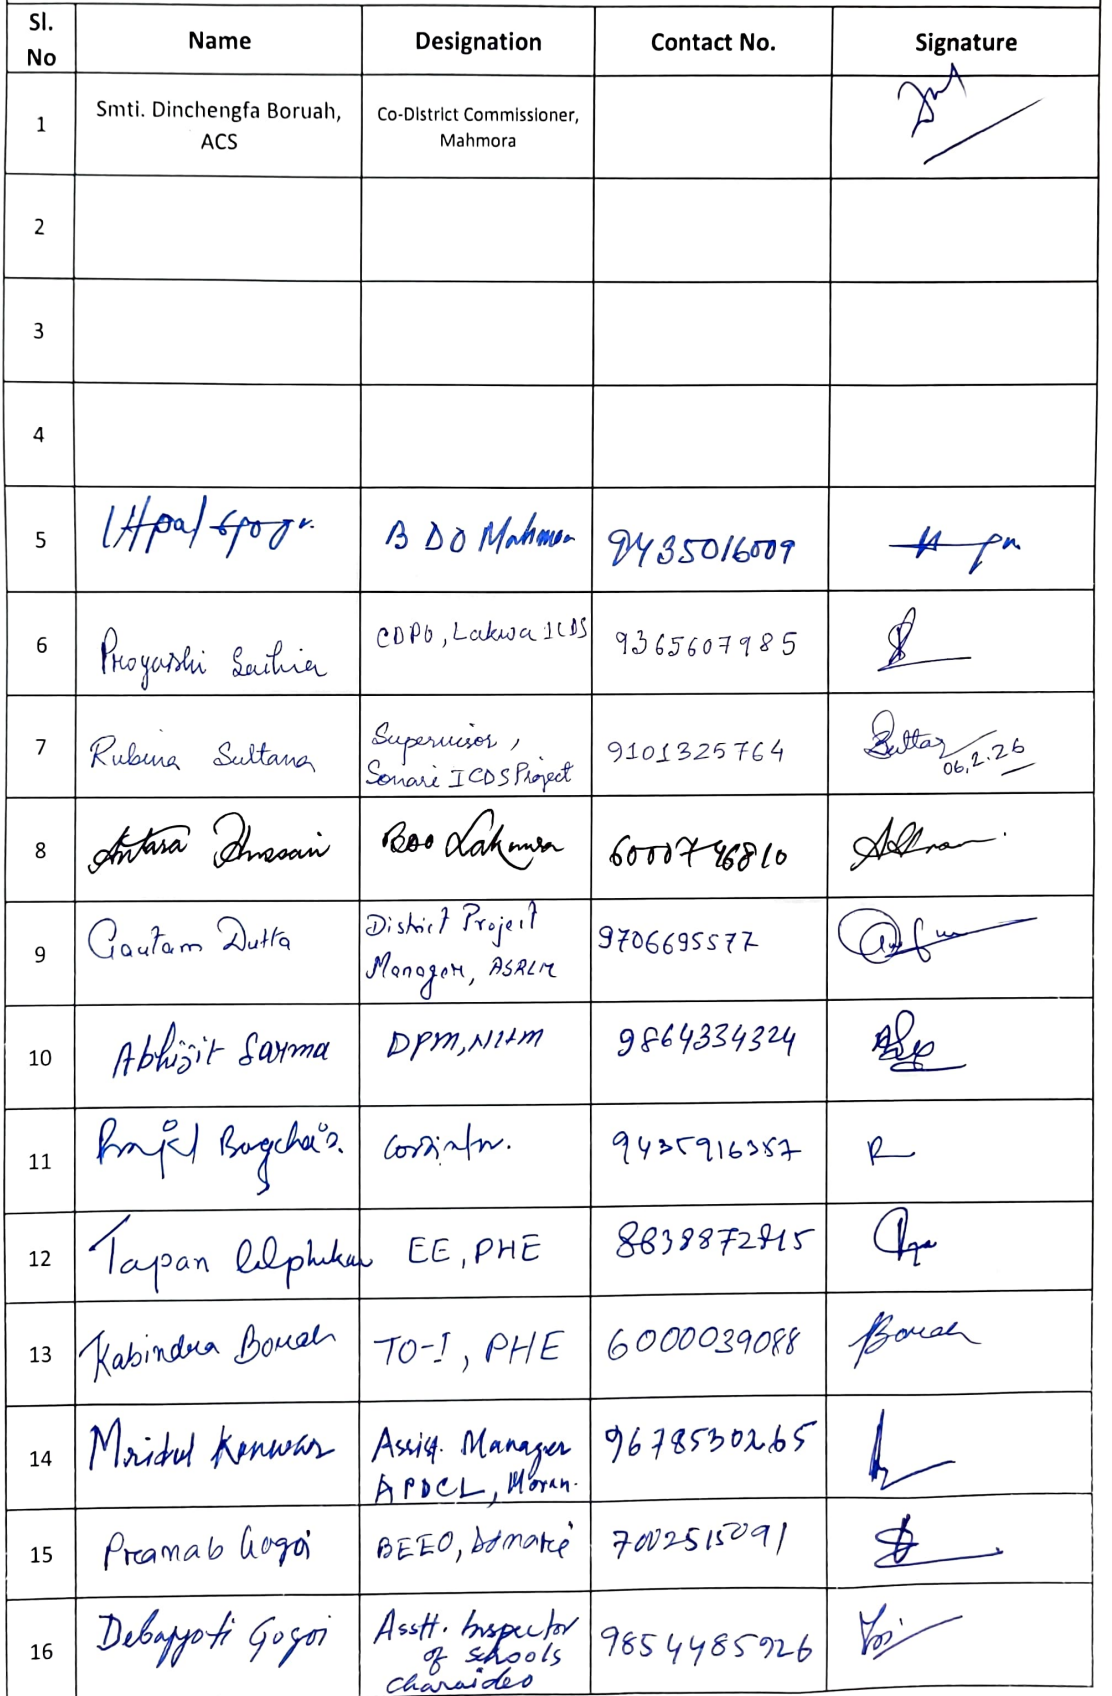 Sl. No Name Designation Contact No. Signature
1 Smti. Dinchengfa Boruah, ACS Co-District Commissioner, Mahmora
2
3
4
5 BDO Mahmora 9435016009
6 Proyashi Saikia CDPO, Lakwa ICDS 9365607985
7 Rubina Sultana Supervisor, Sonari ICDS Project 9101325764 06.2.26
8 Antara Hussain BDO Lakuwa 6000746810
9 Gautam Dutta District Project Manager, ASRLM 9706695577
10 Abhijit Sarma DPM, NHM 9864334324
11 9435916357
12 Tapan EE, PHE
13 Kabindra Borah TO-I, PHE 6000039088 Borah
14 Mridul Konwar Assist. Manager APDCL, Moran. 9678530265
15 Pranab Gogoi BEEO, 7002515091
16 Debajyoti Gogoi Asstt. Inspector of schools charaideo 9854485926